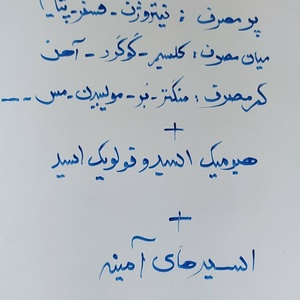 پر مصرف : نیتروژن - فسفر - پتا
میان مصرف : کلسیم - گوگرد - آهن
کم مصرف : منگنز - بُر - مولیبدن - مس - - -
+
هیومیک اسید و فولویک اسید
+
اسیدهای آمینه